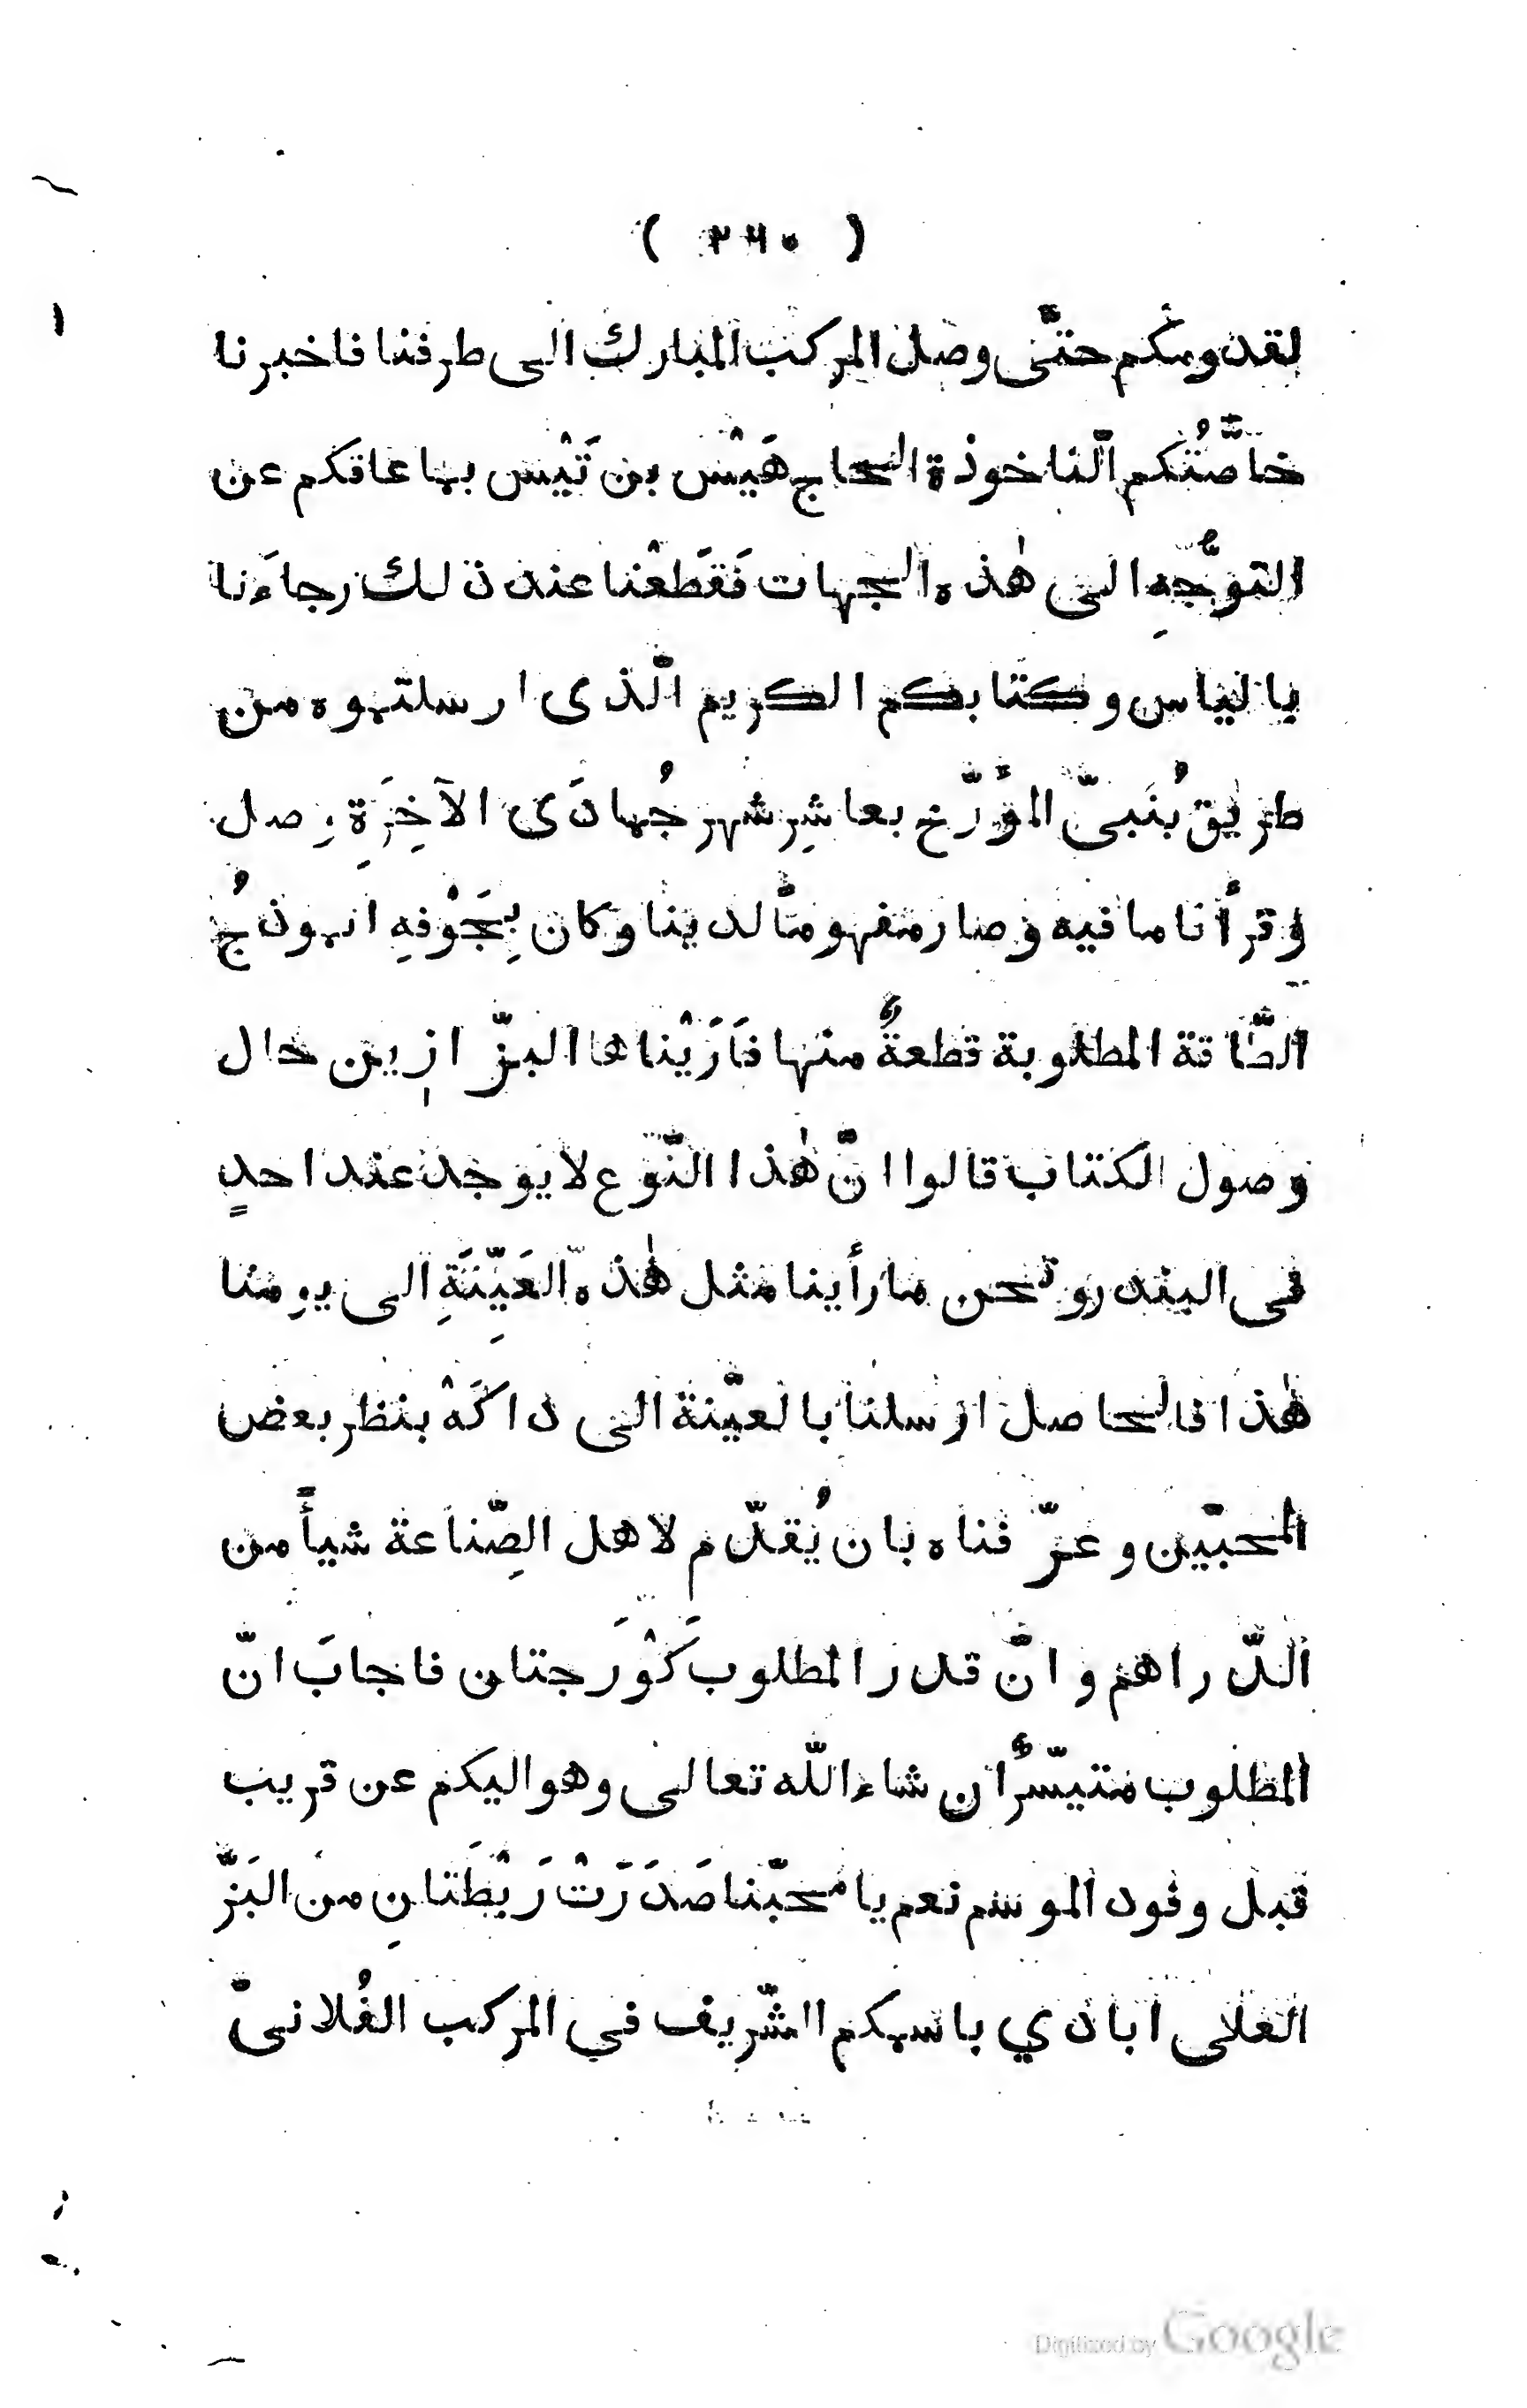 ( ٢٦٠ )
لقدومكم حتّى وصل المركب المبارك الى طرفنا فاخبرنا
خاصَّتُكم النّاخوذة الحاج هَيْس بن تَيْس بما عاقكم عن
التوجُّهِ الى هٰذه الجهات فَقَطَعْنا عند ذلك رجاءَنا
بالياس وكتابكم الكريم الّذى ارسلتموه من
طريق بُنَبىّ المؤرّخ بعاشِر شهر جُمادَى الآخِرَةِ وصل
وقرأنا ما فيه وصار مفهوماً لدينا وكان بِجَوْفهِ انموذجُ
الطّاقة المطلوبة قطعةٌ منها فاَرَيْناها البزّازِين حال
وصول الكتاب قالوا انّ هٰذا النّوع لا يوجد عند احدٍ
فى البندر ونحن ما رأينا مثل هٰذه العَيِّنَةِ الى يومنا
هٰذا فالحاصل ارسلنا بالعيّنة الى داكَهْ بنظر بعض
المحبّين وعرّفناه بان يُقدّم لاهل الصِّناعة شيأً من
الدّراهم وانّ قدر المطلوب كَوْرَجتان فاجابَ انّ
المطلوب متيسّرٌ ان شاء اللّه تعالى وهو اليكم عن قريب
قبل وفود الموسم نعم يا محبّنا صَدَرَتْ رَبْطَتانِ من البَزِّ
العلى ابادي باسمكم الشّريف في المركب الفُلانىّ
Digitized by Google